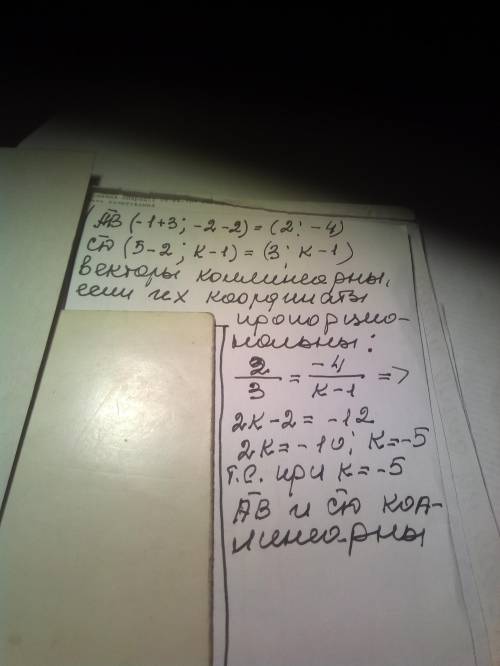 AB (-1+3; -2-2) = (2; -4)
CD (5-2; к-1) = (3; к-1)
векторы коллинеарны,
если их координаты
пропорцио-
нальны:
2/3 = -4/к-1 =>
2к-2 = -12
2к=-10; к=-5
т.е. при к=-5
AB и CD кол-
линеарны